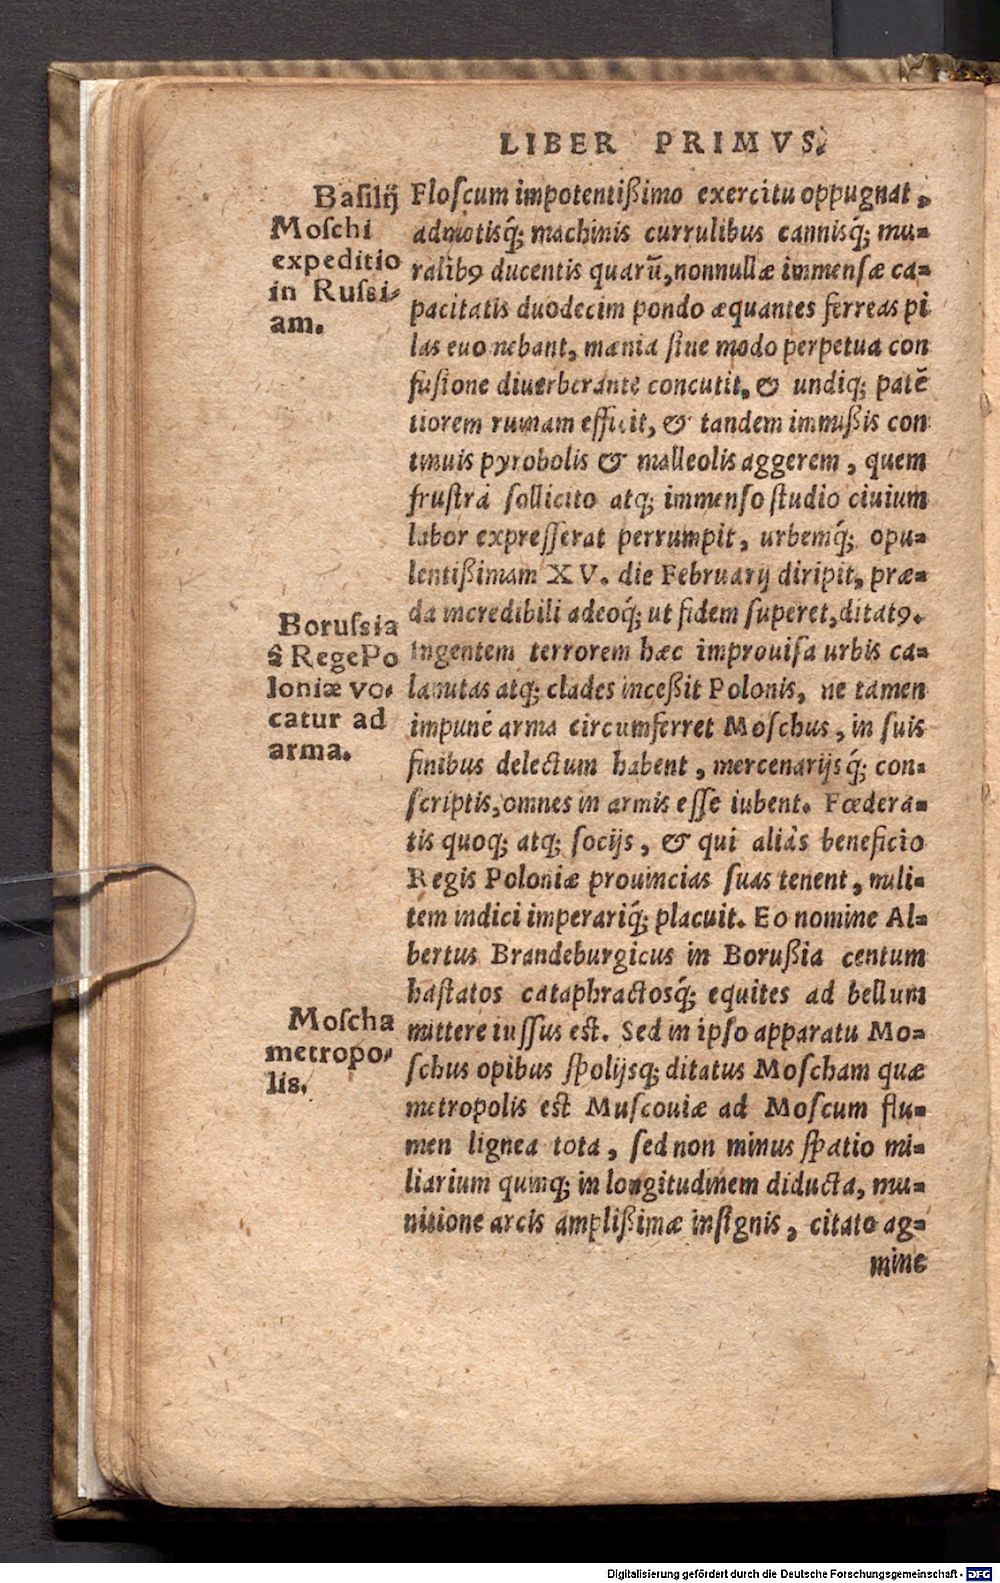 LIBER PRIMVS.
Basilij
Moſchi
expeditio
in Ruſsi-
am.
Floſcum impotentißimo exercitu oppugnat,
admotisq́; machinis currulibus cannisq́; mu-
ralibꝰ ducentis quarū, nonnullæ immenſæ ca-
pacitatis duodecim pondo æquantes ferreas pi
las euomebant, mænia ſiue modo perpetua con
fuſione diuerberante concutit, & undiq; patē
tiorem ruinam efficit, & tandem immißis con
tinuis pyrobolis & malleolis aggerem, quem
fruſtrà ſollicito atq; immenſo ſtudio ciuium
labor expreſſerat perrumpit, urbemq́; opu-
lentißimam XV. die Februarij diripit, præ-
da incredibili adeoq́; ut fidem ſuperet, ditatꝰ.
Boruſsia
à Rege Po
loniæ vo-
catur ad
arma.
Ingentem terrorem hæc improuiſa urbis ca-
lamitas atq; clades inceßit Polonis, ne tamen
impunè arma circumferret Moſchus, in ſuis
finibus delectum habent, mercenarijsq́; con-
ſcriptis, omnes in armis eſſe iubent. Fœdera-
tis quoq; atq; ſocijs, & qui aliàs beneficio
Regis Poloniæ prouincias ſuas tenent, mili-
tem indici imperariq́; placuit. Eo nomine Al-
bertus Brandeburgicus in Borußia centum
haſtatos cataphractosq́; equites ad bellum
Moſcha
metropo-
lis.
mittere iuſſus eſt. Sed in ipſo apparatu Mo-
ſchus opibus ſpolijsq; ditatus Moſcham quæ
metropolis eſt Muſcouiæ ad Moſcum flu-
men lignea tota, ſed non minus ſpatio mi-
liarium quinq; in longitudinem diducta, mu-
nitione arcis amplißimæ inſignis, citato ag-
mine
Digitalisierung gefördert durch die Deutsche Forschungsgemeinschaft - DFG